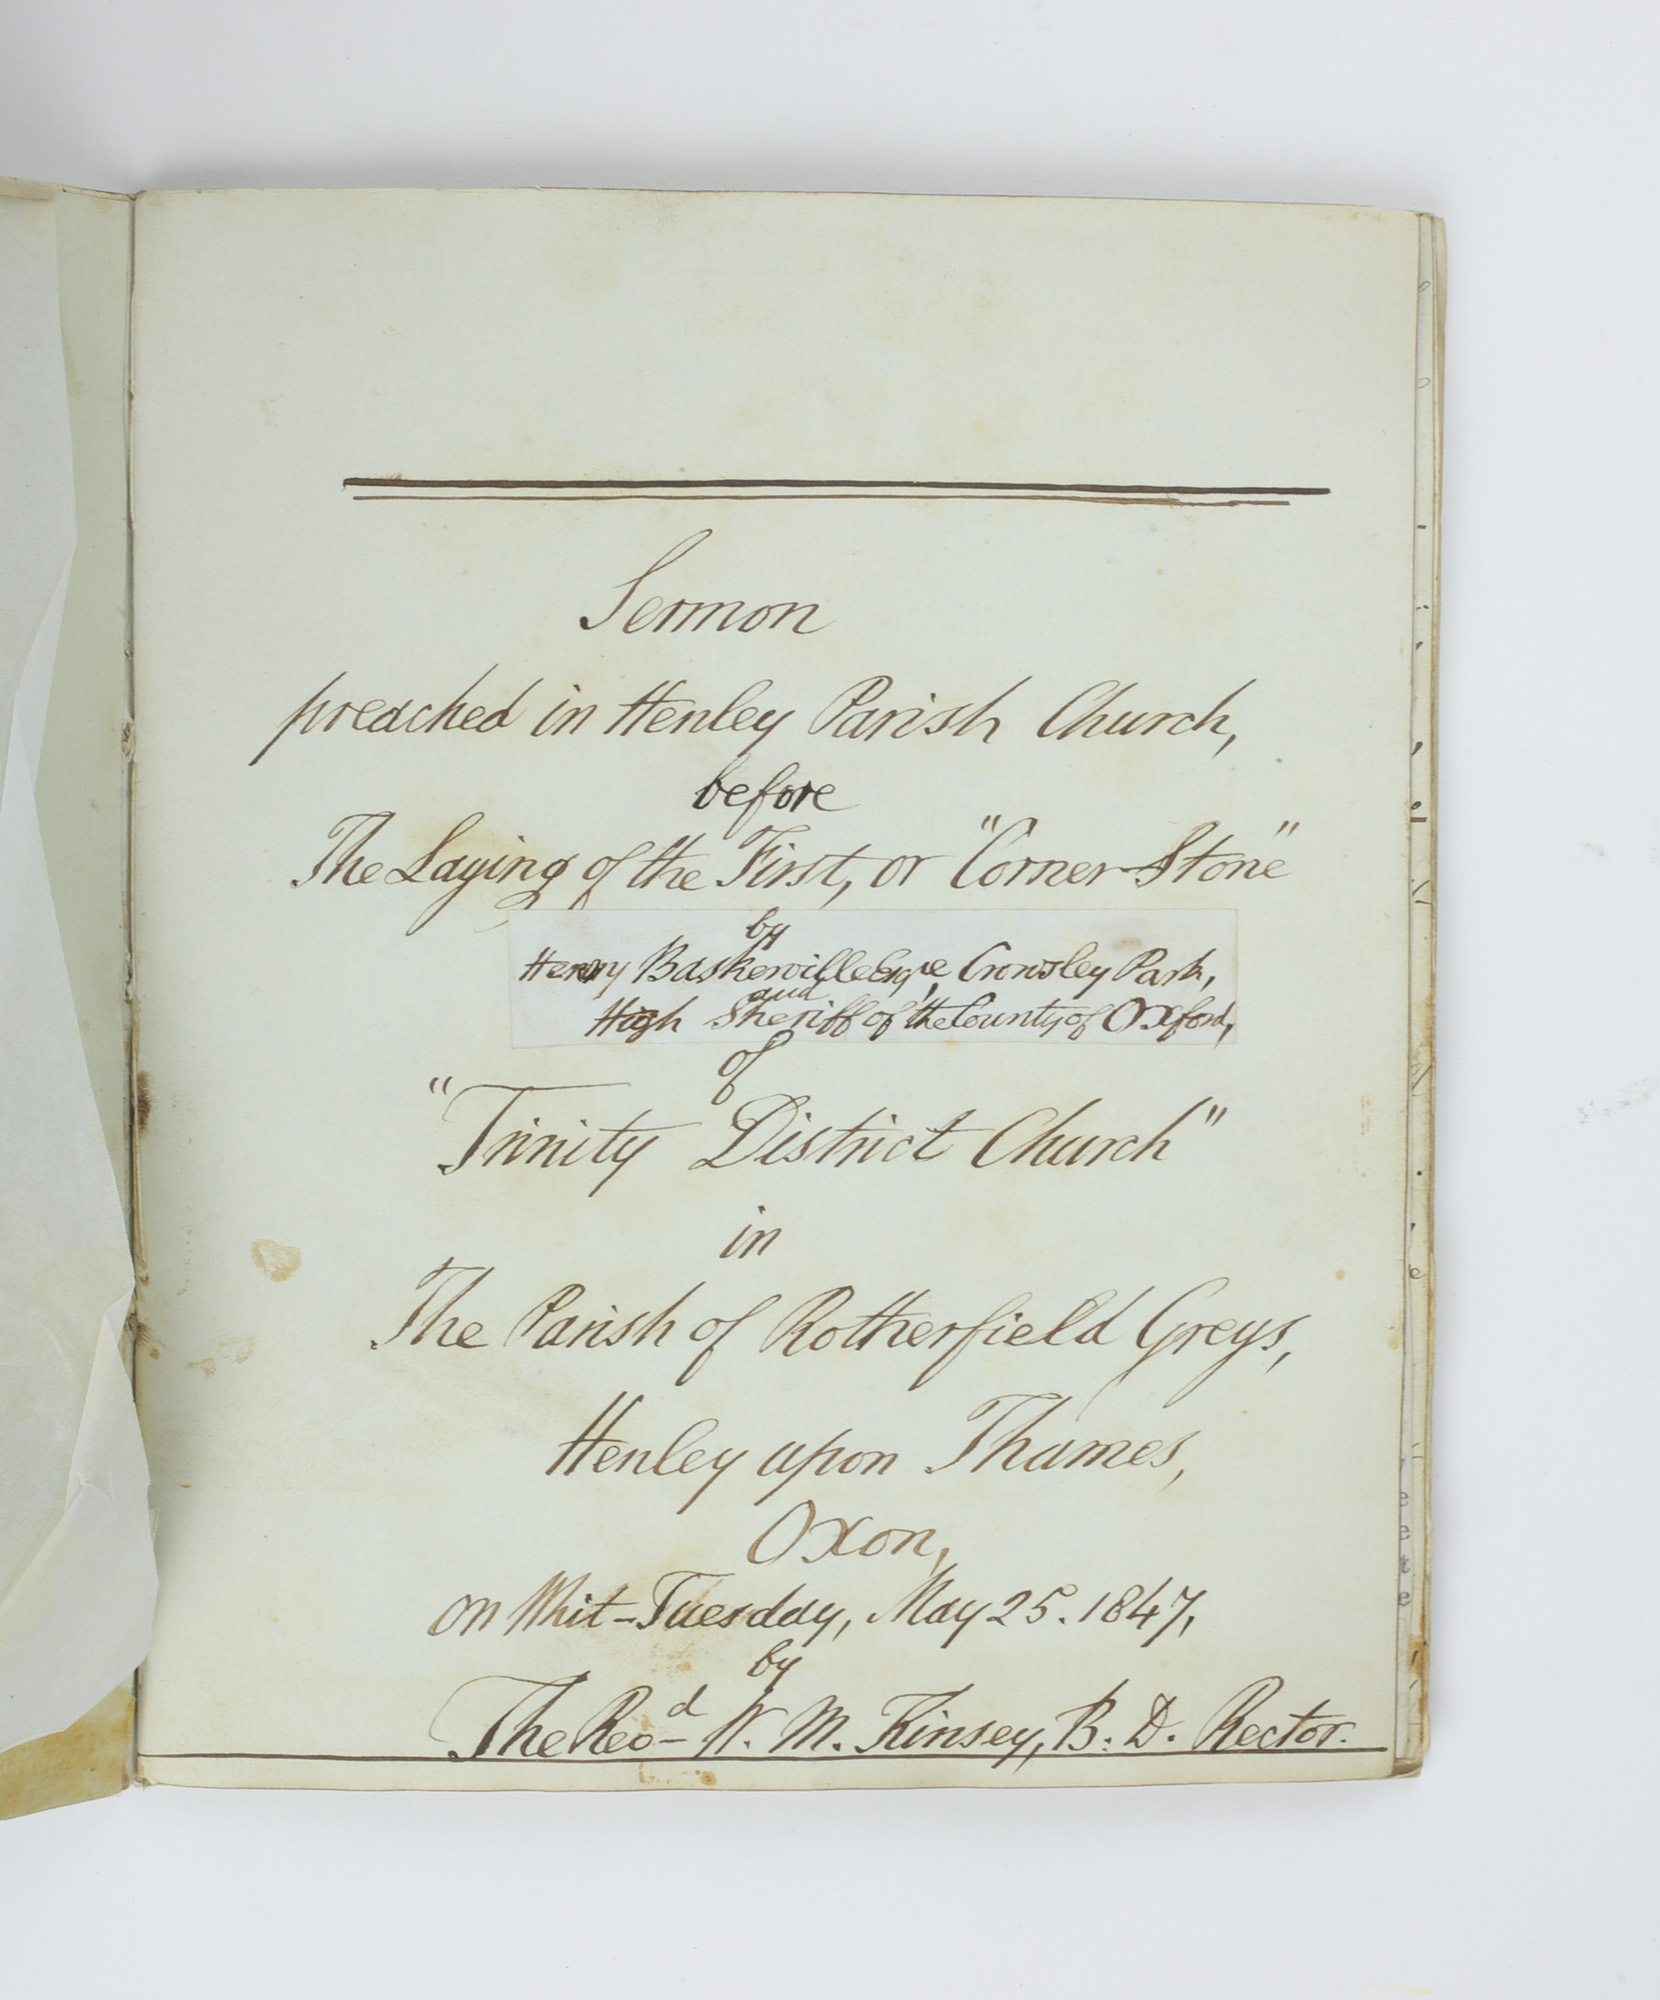 Sermon
preached in Henley Parish Church,
before
The Laying of the First, or "Corner-Stone"
by
Henry Baskerville Esqre, Crowsley Park,
and
High Sheriff of the County of Oxford,
of
"Trinity District Church"
in
The Parish of Rotherfield Greys,
Henley upon Thames,
Oxon,
on Whit-Tuesday, May 25. 1847,
by
The Revd W. M. Kinsey, B. D. Rector.